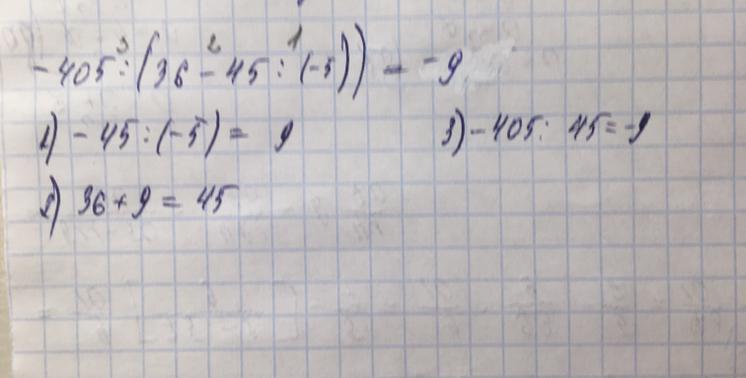 3 2 1
-405 : (36 - 45 : (-5)) = -9
1) -45 : (-5) = 9 3) -405 : 45 = -9
2) 36 + 9 = 45